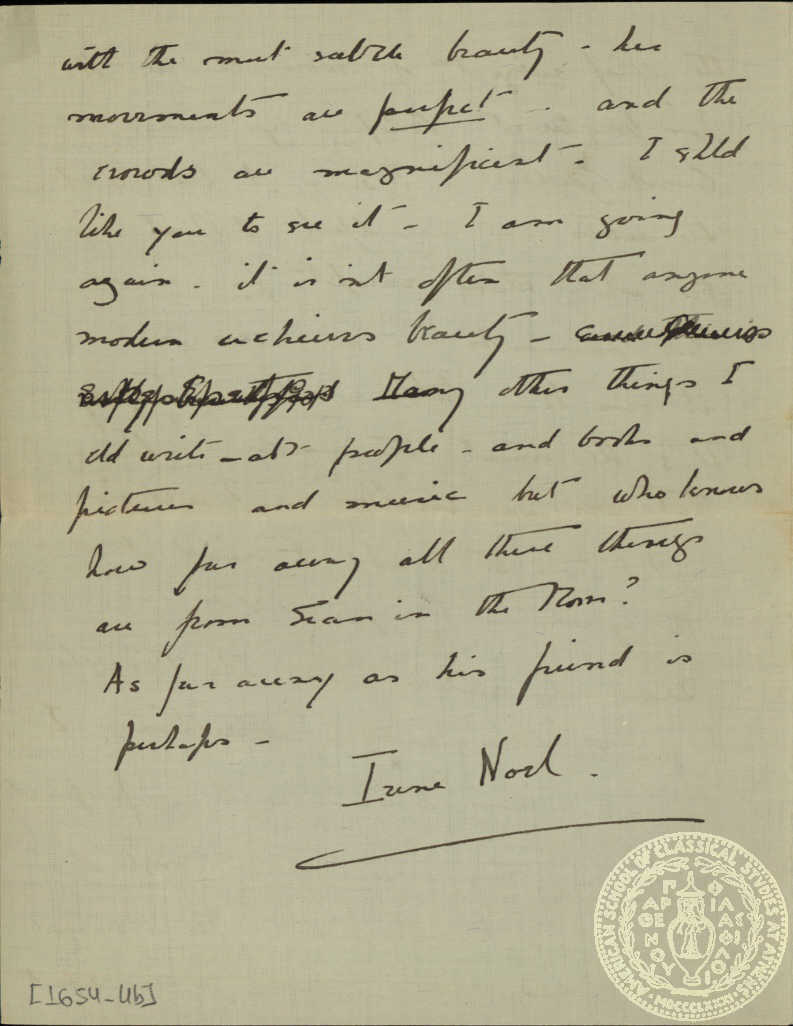 with the most subtle beauty - her
movements are perfect - and the
crowds are magnificent - I shld
like you to see it - I am going
again - it isn't often that anyone
modern achieves beauty -
Many other things I
cld write - abt people - and books and
pictures and music but who knows
how far away all these things
are from in the Room?
As far away as his friend is
perhaps -
Irene Noel.
AMERICAN SCHOOL OF CLASSICAL STUDIES AT ATHENS
ΠΑΡΘΕΝΟΥ ΦΙΛΑΣ ΦΙΛΟΙ
MDCCCLXXXI
[1654-Ub]